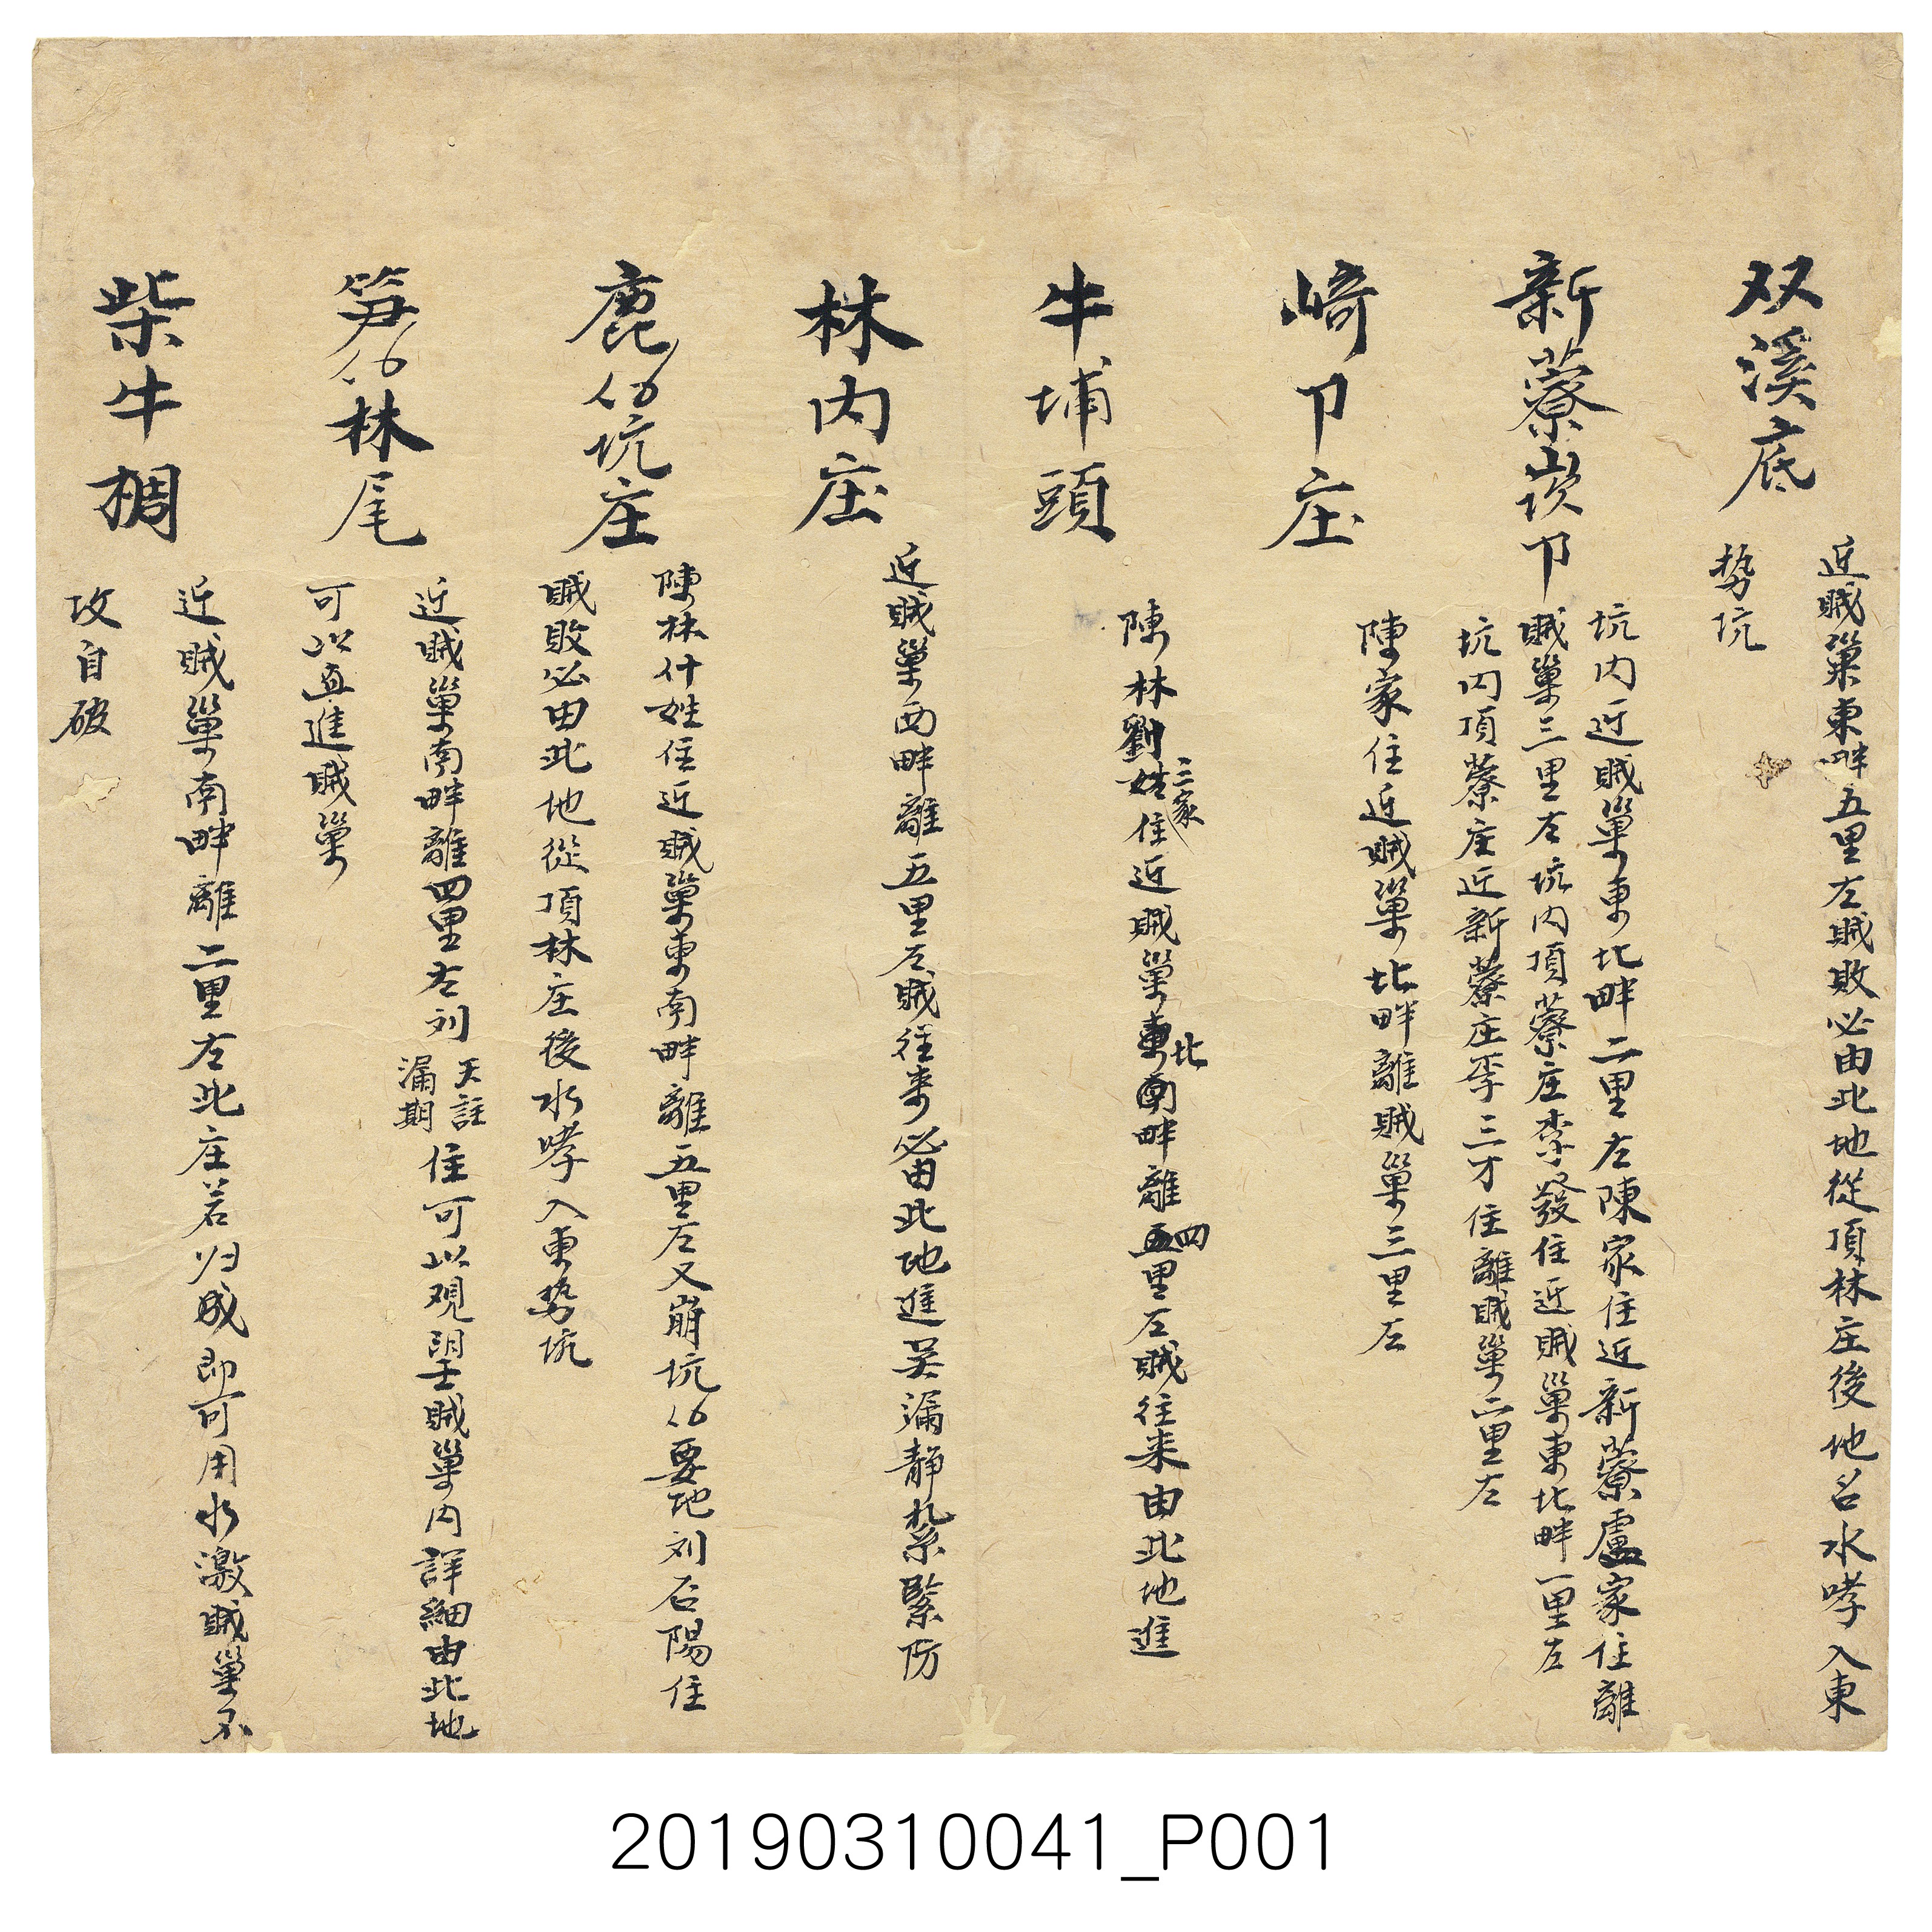 双溪底
近賊巢東畔五里左賊敗必由此地從頂林庄後地名水哮入東
势坑
新藔崁卩
坑内近賊巢東北畔二里左陳家住近新藔盧家住離
賊巢三里左坑内頂藔庄李發住近賊巢東北畔一里左
坑内頂藔庄近新藔庄李三才住離賊巢二里左
崎卩庄
陳家住近賊巢北畔離賊巢三里左
牛埔頭
陳林劉姓三家住近賊巢東北畔離四里左賊往来由此地進
林内庄
近賊巢西畔離五里左賊往来必由此地進吴漏静紮緊防
鹿仔坑庄
陳林什姓住近賊巢東南畔離五里左又崩坑仔要地刘石陽住
賊敗必由此地從頂林庄後水哮入東势坑
笋仔林尾
近賊巢南畔離四里左刘天註漏期住可以观望賊巢内詳細由此地
可以直進賊巢
柴牛椆
近賊巢南畔離二里左此庄若归成即可用水激賊巢不
攻自破
20190310041_P001